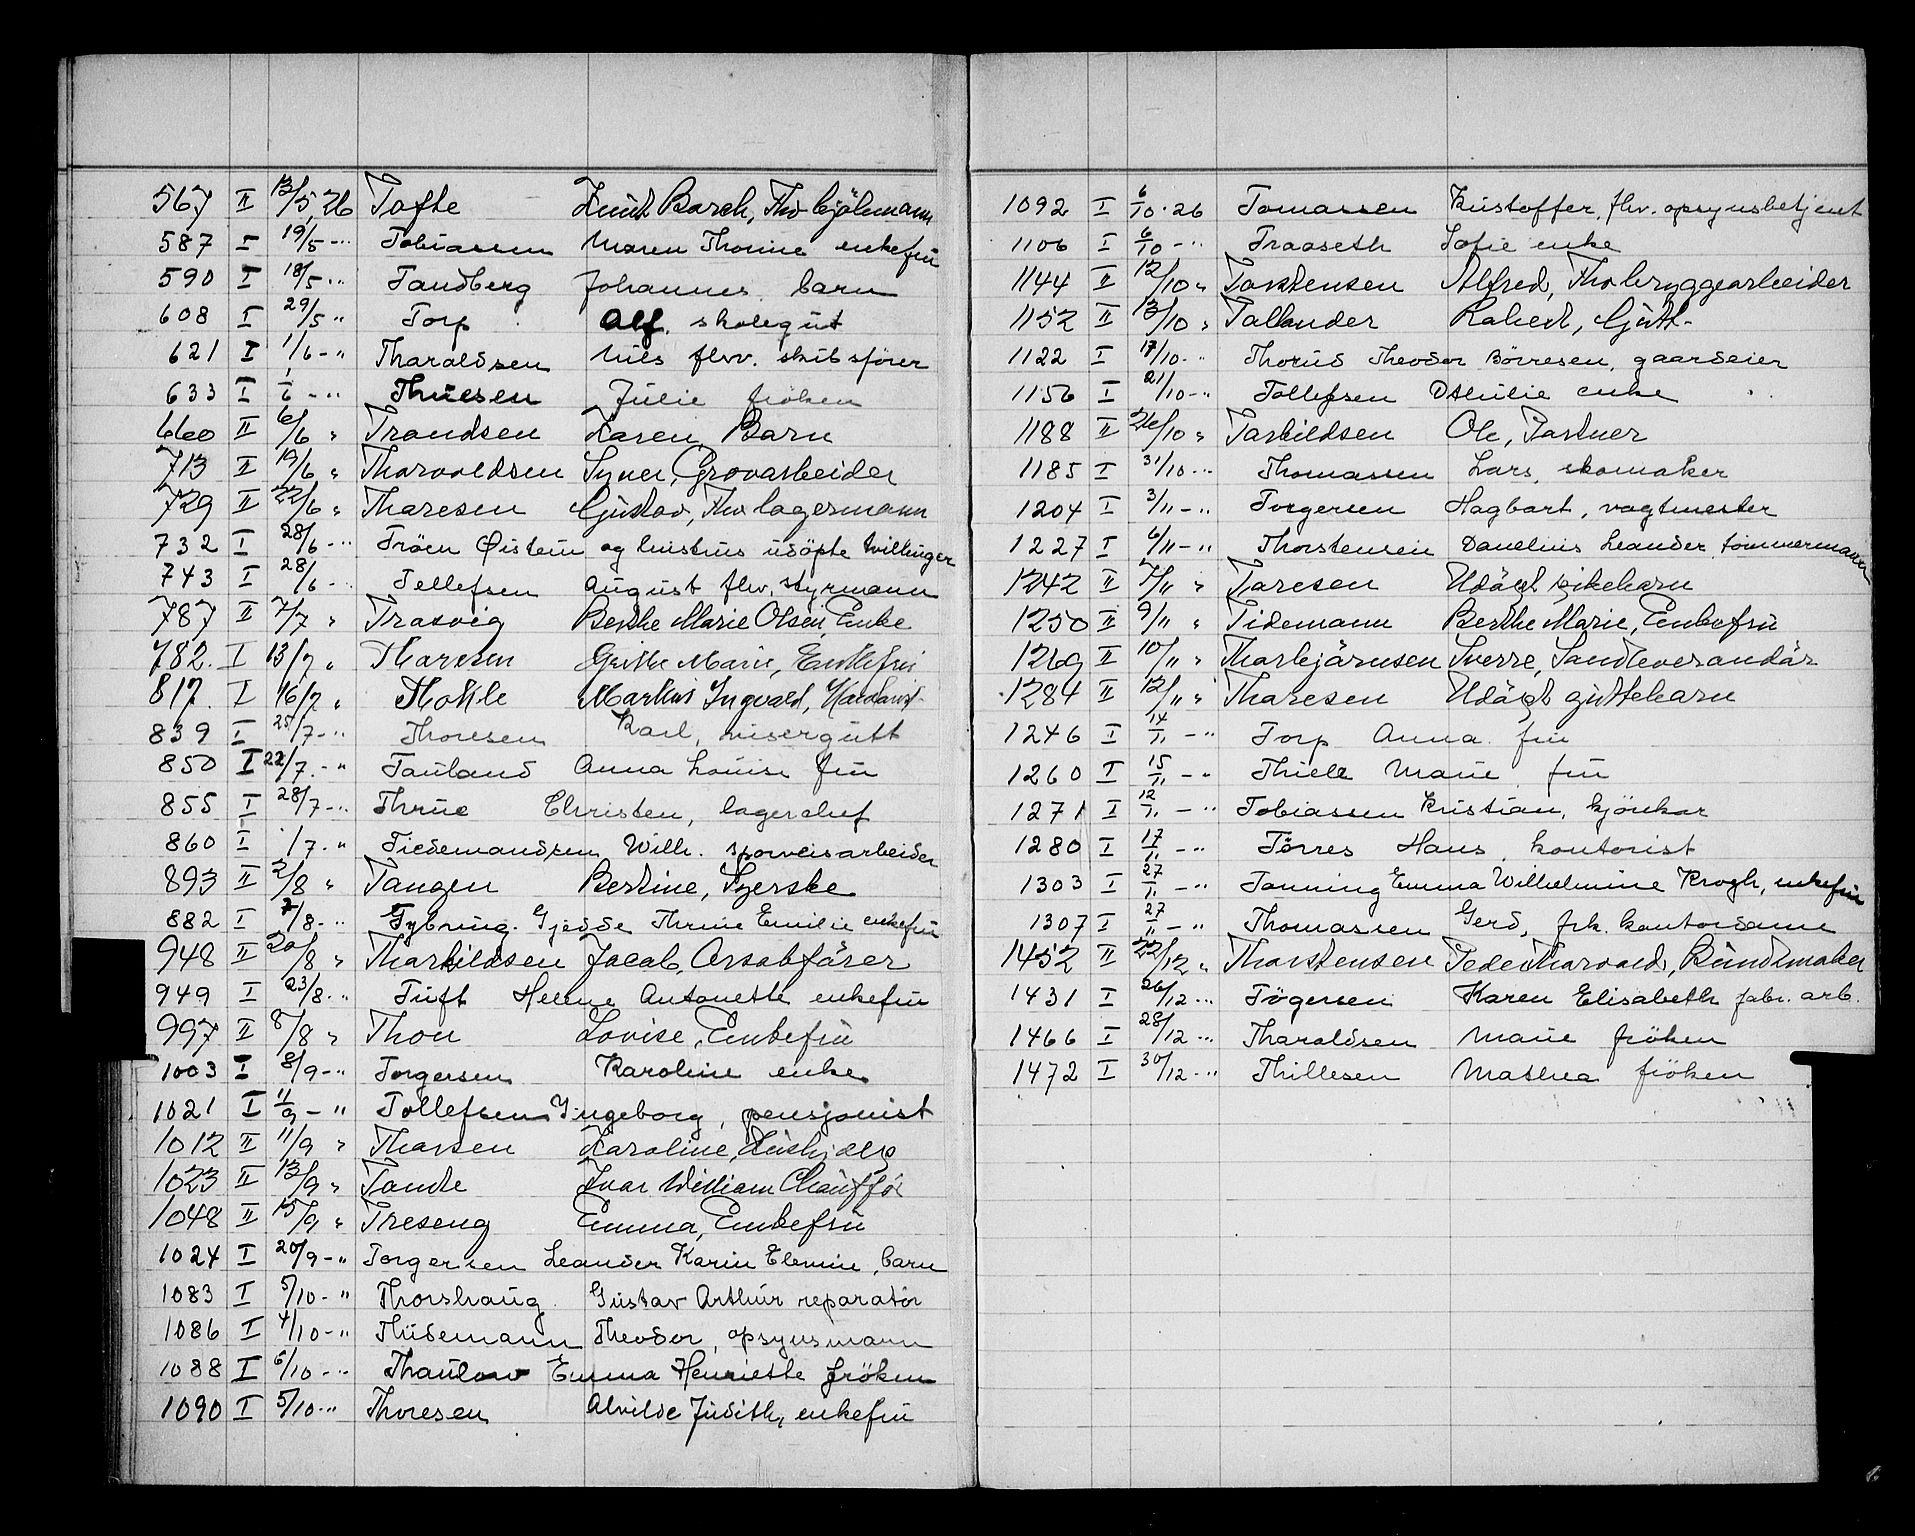 567 II 13/5 26 Tofte Knut Barch, Fhv kjölmann
587 I 19/5 -"- Tobiassen Maren Thorine enkefru
590 I 18/5 -"- Tandberg Johannes. barn
608 I 29/5 " Torp Alf. skolegut
621 I 1/6 -" Tharaldsen Nils flvv. skibsförer
633 I 1/6 -" Thuesen Julie fröken
660 II 6/6 " Trondsen Karen, Barn
713 II 19/6 " Thorvaldsen Syver, Grovarbeider
729 II 22/6 " Thoresen Gustav, Fhv lagermann
732 I 28/6 -"- Tröen Östein og hustrus udöpte tvillinger
743 I 28/6 - Tellefsen August flv. styrmann
787 II 7/7 " Trosvig Berthe Marie Olsen, Enke
782. I 13/7 " Thoresen Grethe Marie, Enkefru
817. I 16/7 " Thokle Markus Ingvald,
839 I 25/7 -" Thoresen Karl, visergutt
850 I 22/7. -" Tauland Anna Louise fru
855 I 28/7 -" Thrue Christen, lagerchef
860 I /7. " Tiedemandsen Wilh. sporveisarbeider
893 II 2/8 " Tangen Bertine, Syerske
882 I 7/8 -" Tybring. Gjedde Thrine Emilie enkefru
948 II 20/8 " Thorkildsen Jacob, Arsabförer
949 I 23/8 -" Tuft Helene Antonette enkefru
997 II 8/8 " Thon Lovise, Enkefru
1003 I 8/9 -" Torgersen Karoline enke
1021 I 11/9 - " Tollefsen Ingeborg, pensjonist
1012 II 11/9 " Thorsen Karoline, Hushjelp
1023 II 13/9 " Tomte Ivar William Chaufför
1048 II 15/9 " Treseng Emma, Enkefru
1024 I 20/9 -" Torgersen Leander Karin Elvine, barn
1083 I 5/10 - " Thorshaug Gustav Arthur reparatör
1086 I 4/10 -" Thidemann Theodor, opsynsmann
1088 I 6/10 -" Thaulow Emma Henriette fröken
1090 I 5/10 -" Thoresen Alvilde Judith, enkefru
1092 I 6/10 . 26 Tomassen Kristoffer, fhv. opsynsbetjent
1106 I 6/10 -" Traaseth Sofie enke
1144 II 12/10 " Torstensen Alfred, Fhv bryggearbeider
1152 II 13/10 " Tallander Robert, Gutt-
1122 I 17/10 -" Thorud Theodor Börresen, gaardeier
1156 I 21/10 -" Tollefsen Othilie enke
1188 II 26/10 " Torkildsen Ole, Portner
1185 I 31/10 -" Thomassen Lars, skomaker
1204 I 3/11 - " Torgersen Hagbart, vagtmester
1227 I 6/11 - " Thorstensen Danelius Leander tömmermann
1242 II 7/11 " Toresen Udöpt pikebarn
1250 II 9/11 " Tidemann Berthe Marie, Enkefru
1269 II 10/11 " Thorbjörnsen Sverre, Sandleverandör
1284 II 12/11 " Thoresen Udöpt guttebarn
1246 I 14/11 - " Torp Anna. fru
1260 I 15/11 - " Thiele Marie fru
1271 I 12/11 - " Tobiassen Kristian, kjörekar
1280 I 17/11 - " Törres Hans, kontorist
1303 I 27/11 - " Tonning Emma Wilhelmine Krogh, enkefru
1307 I 27/11 - " Thomassen Gerd, frk. kontordame
1452 II 22/12 " Thorstensen Peder Thorvald, Bundtmaker
1431 I 26/12 -" Tögersen Karen Elisabeth fabr. arb.
1466 I 28/12 -" Tharaldsen Marie fröken
1472 I 30/12 -" Thillesen Mathea fröken